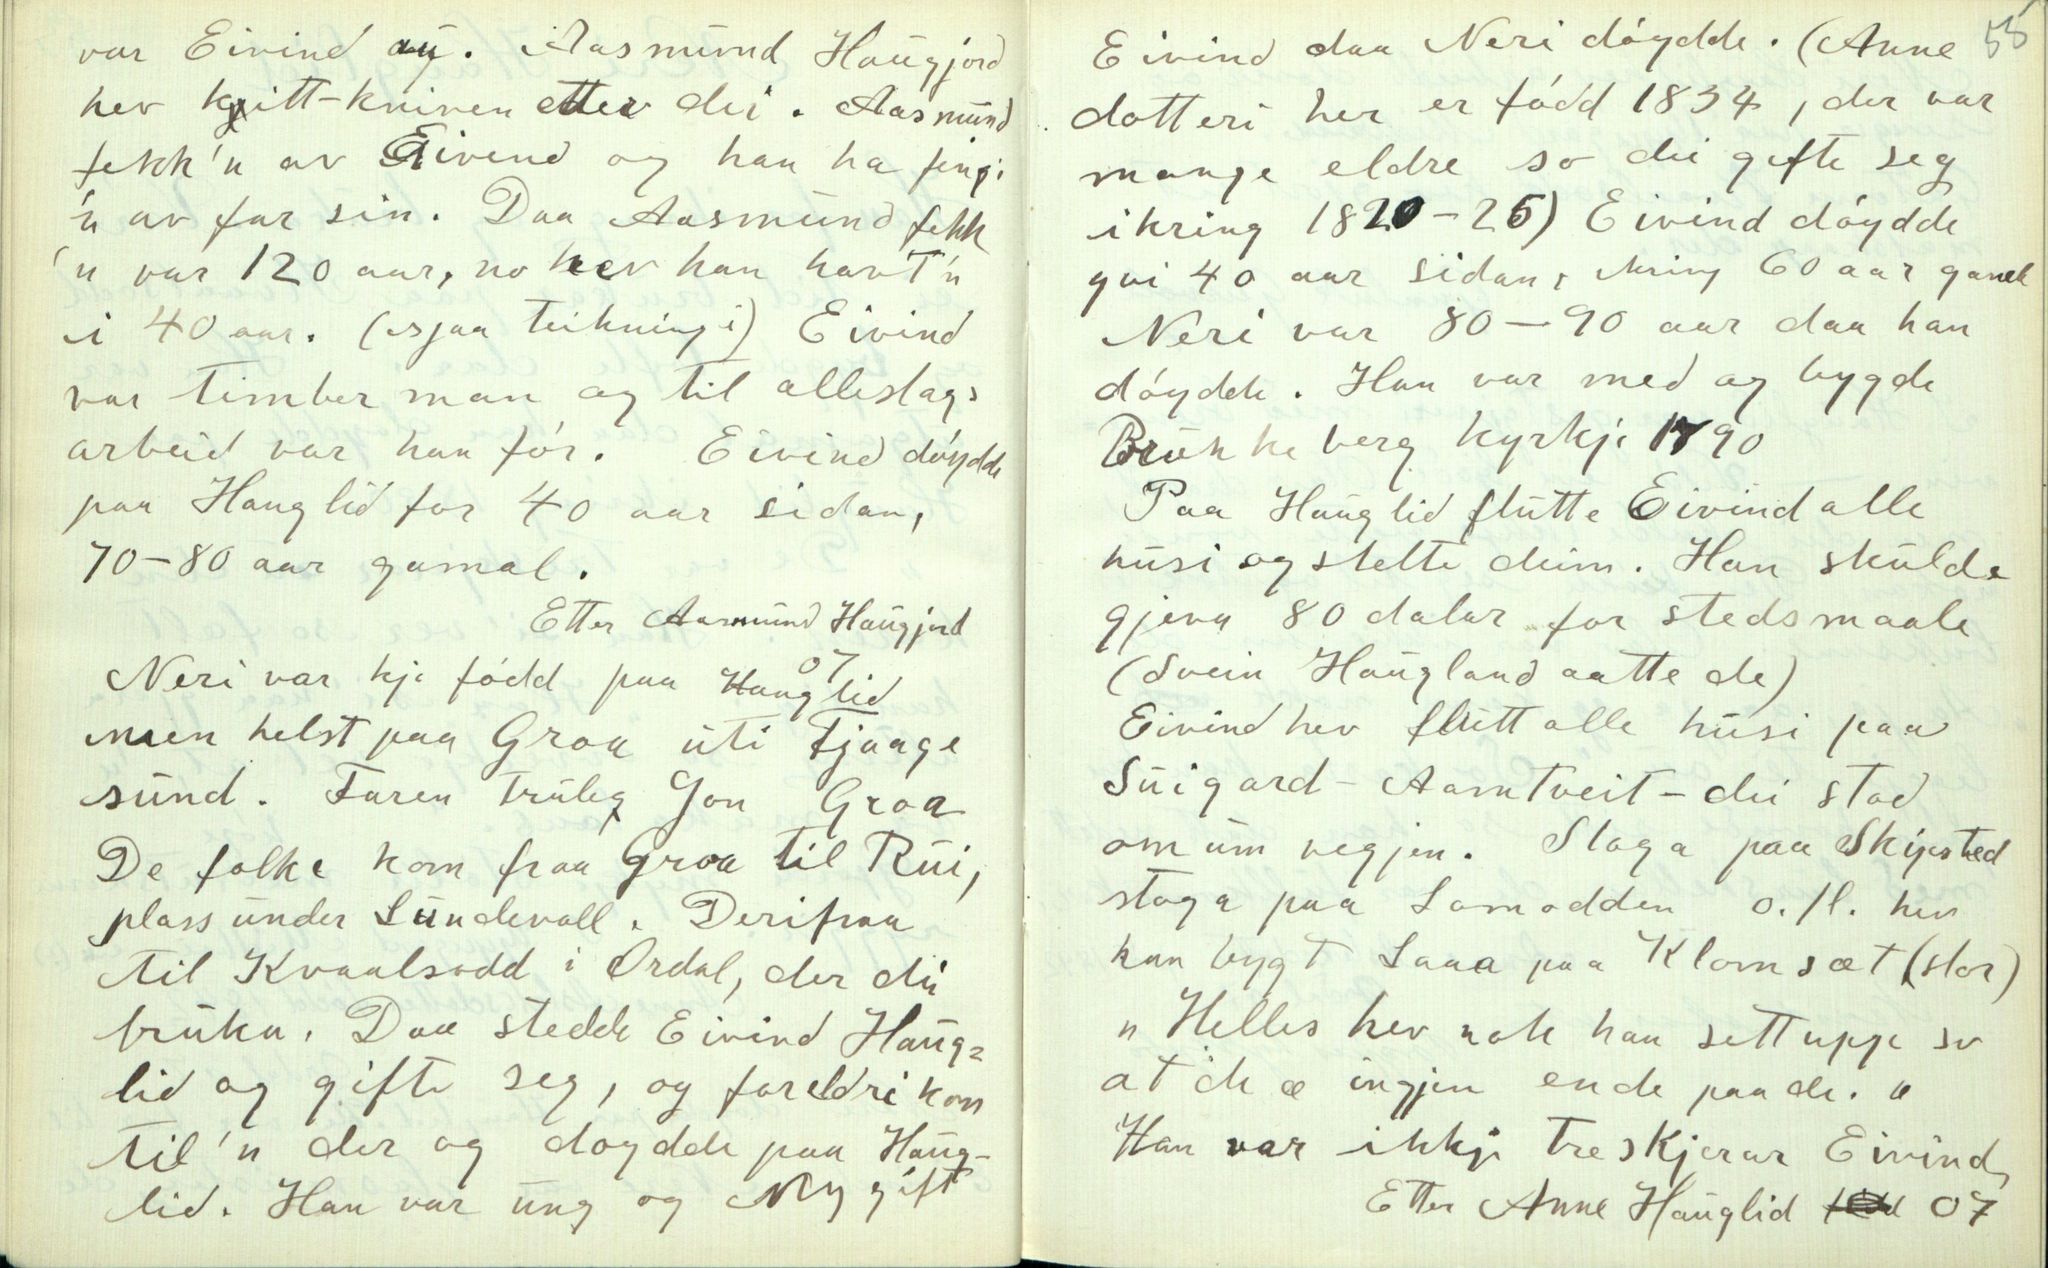 var Eivind au. Aasmund Haugjord
hev kvitt-kniven etter dei. Aasmund
fekk'n av Eivend og han ha fingi
'n av far sin. Daa Aasmund fekk
'n var 120 aar, no hev han havt'n
i 40 aar. (sjaa teikningi) Eivind
var timber man og til alleslags
arbeid var han før. Eivind dóydde
paa Hauglid for 40 aar sidan,
70-80 aar gamal.
Etter Aasmund Haugjord
07
Neri var kje fódd paa Hauglid
men helst paa Groa uti Fjaage
sund. Faren truleg Jon Groa
De folke kom fraa Groa til Rui,
plass under Lundevall. Derifraa
til Kvaalsodd i Ordal, der dei
bruka. Daa stedde Eivind Haug=
lid og gifte seg, og foreldri kom
til'n der og doydde paa Haug-
lid. Han var ung og Ny gift
55
Eivind daa Neri dóydde. (Anne
dotteri her er fódd 1834, der var
mange eldre so dei gifte seg
ikring 1820-25) Eivind dóydde
gvi 40 aar sidan, kring 60 aar gamal
Neri var 80-90 aar daa han
dóydde. Han var med og bygde
Brunkeberg kyrkje 1790
Paa Hauglid flutte Eivind alle
husi og stelte deim. Han skulde
gjeva 80 dalar for stedsmaale
(Svein Haugland aatte de)
Eivind hev flutt alle husi paa
Suigard - Aamtveit - dei stod
om um vegjen. Stoga paa Skipsted
stoga paa Lomodden o.fl. hev
han bygt Laaa paa Klomsæt (stor)
" Helles hev nok han sett uppe so
at de æ ingjen ende paa de. "
Han var ikkje treskjerar Eivind,
Etter Anne Hauglid 07